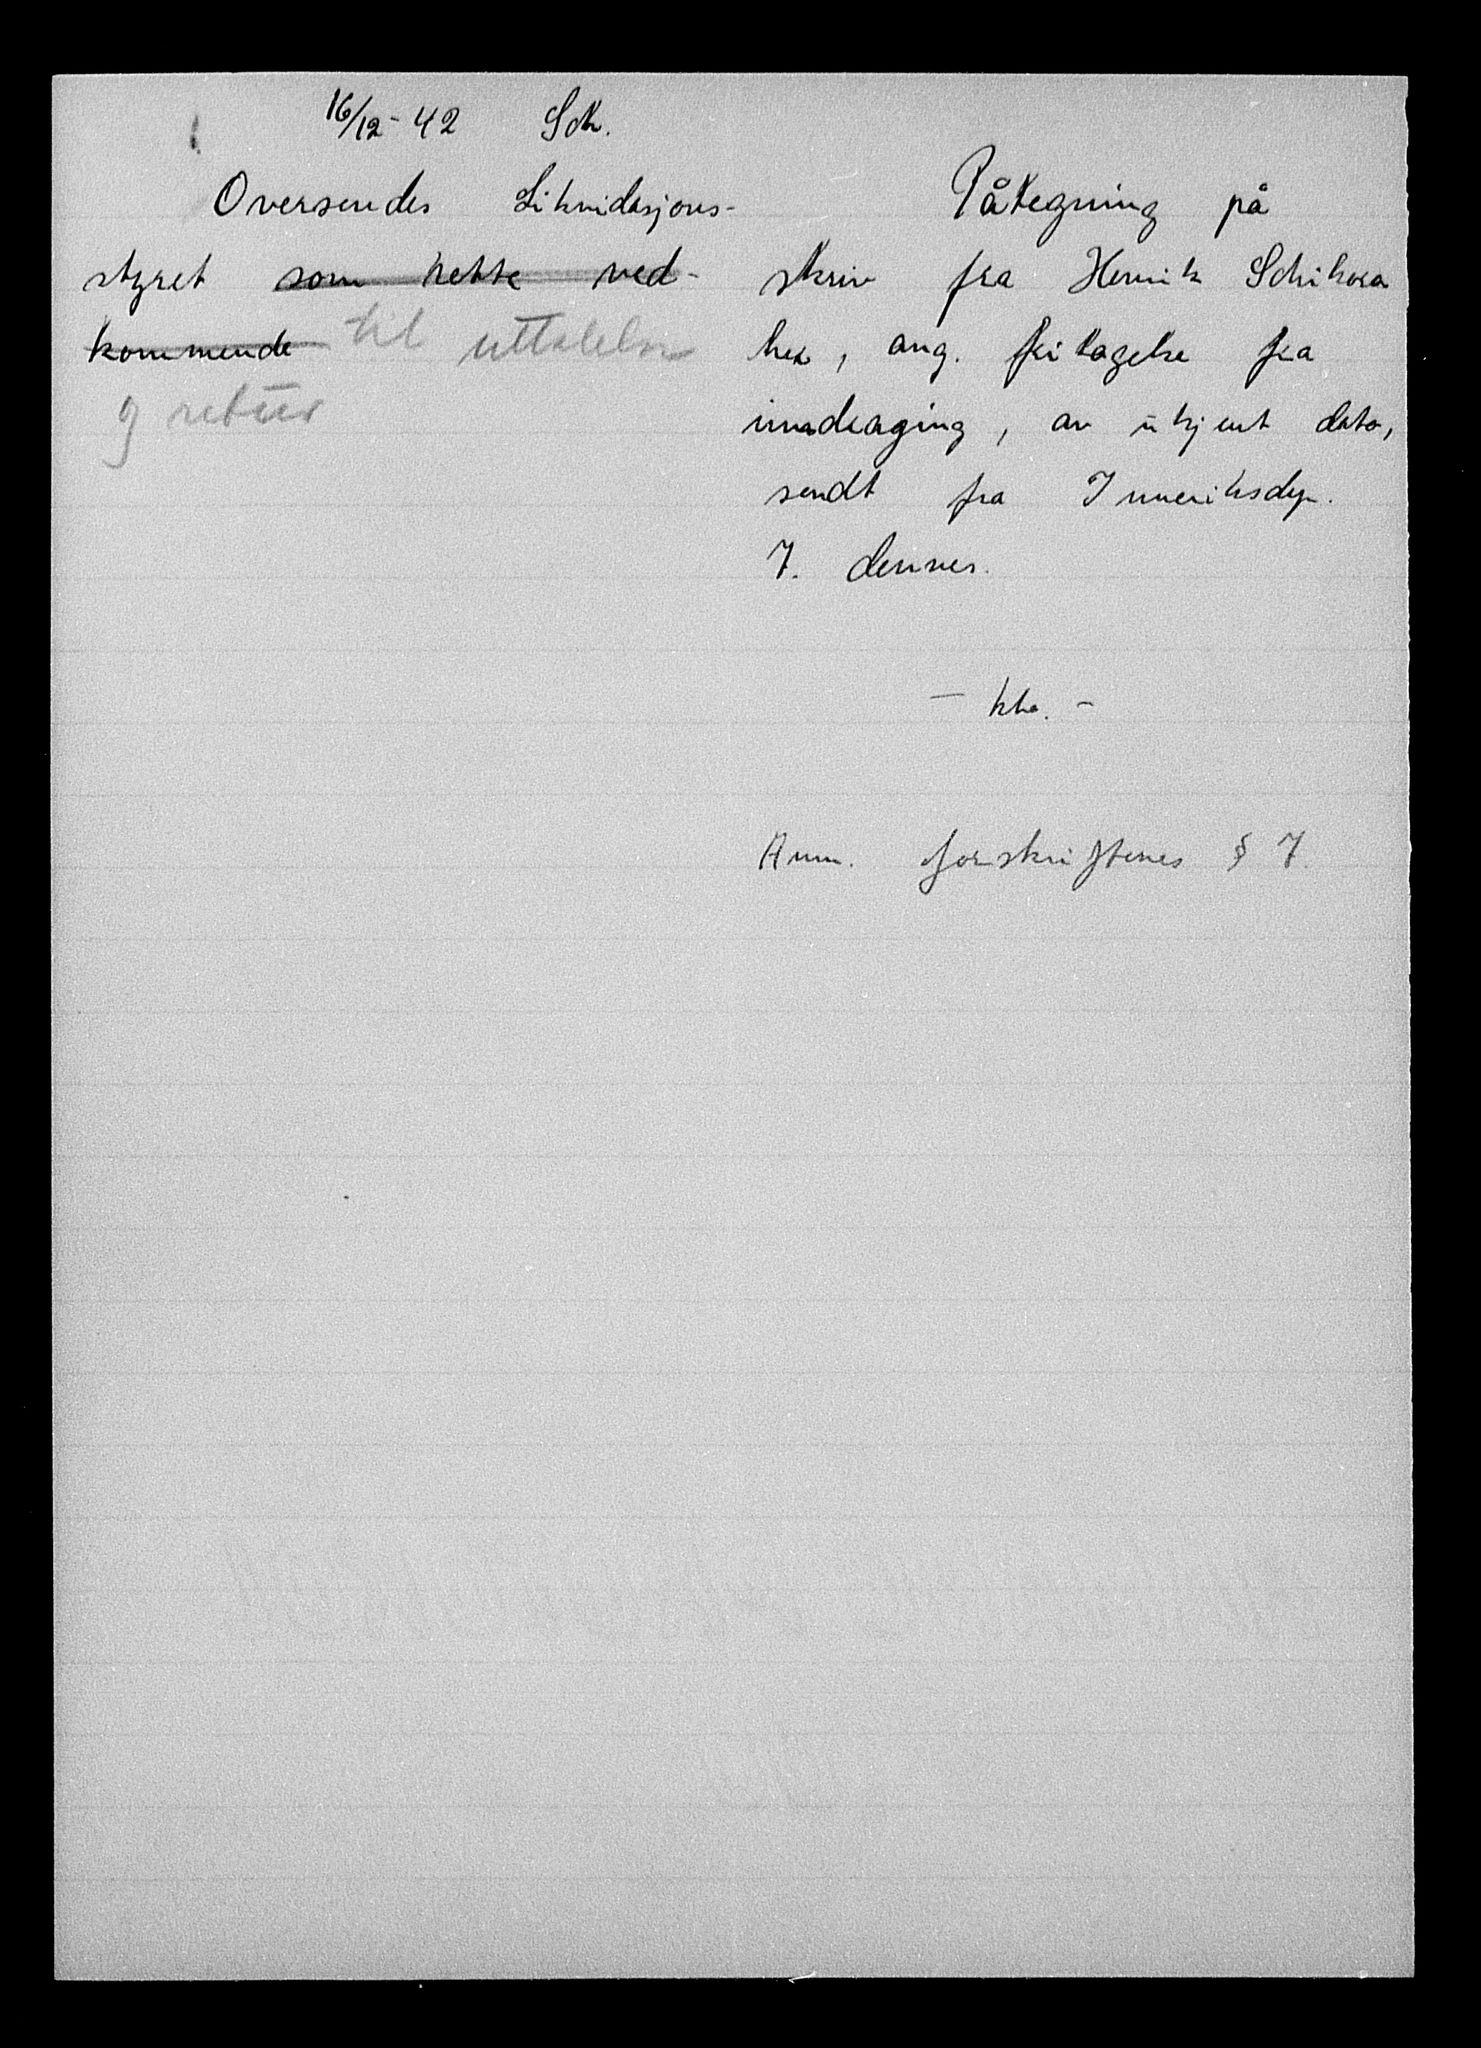 16/12-42 Sch.
Oversendes Likvidasjons-
styret som rette ved-
kommende til uttalelse
og retur
Påtegning på
skriv fra Henrik Schikora
her, ang. fritagelse fra
inndraging, av ukjent dato,
sendt fra Innenriksdep.
7. dennes.
Anm. forskriftenes § 7.